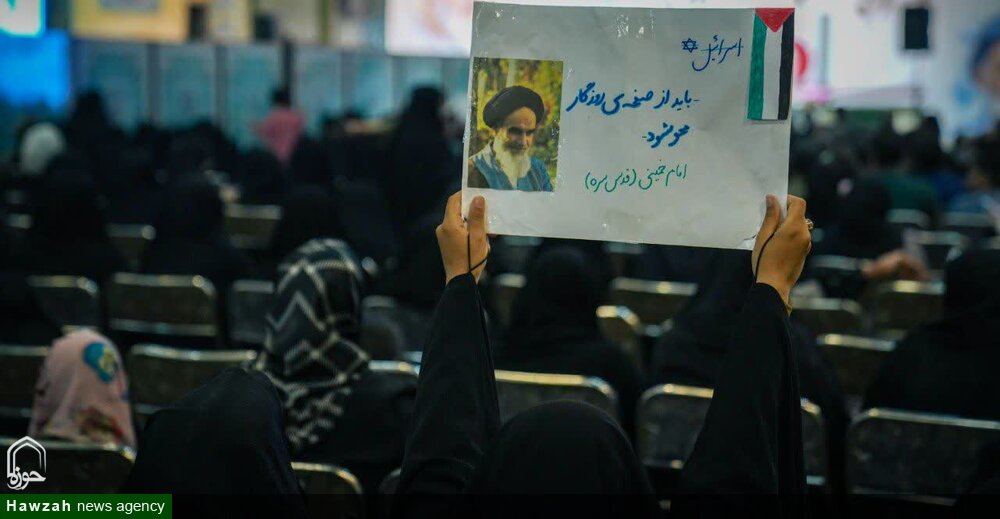 اسرائیل
باید از صفحه‌ی روزگار
محو شود.
امام خمینی (قدس سره)
حوزه
Hawzah news agency